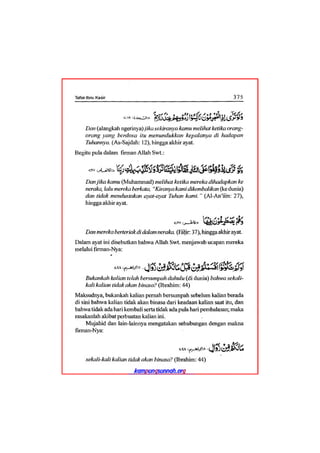 Tafsir Ibnu Kasir 375
Dan (alangkah ngerinya) jika sekiranya kamu melihat ketika orang-
orang yang berdosa itu menundukkan kepalanya di hadapan
Tuhannya. (As-Sajdah: 12), hingga akhir ayat.
Begitu pula dalam firman Allah Swt.:
Dan jika kamu (Muhammad) melihat ketika mereka dihadapkan ke
neraka, lalu mereka berkata, "Kiranya kami dikembalikan (ke dunia)
dan tidak mendustakan ayat-ayat Tuhan kami." (Al-An'ām: 27),
hingga akhir ayat.
Dan mereka berteriak di dalam neraka. (Fāṭir: 37), hingga akhir ayat.
Dalam ayat ini disebutkan bahwa Allah Swt. menjawab ucapan mereka
melalui firman-Nya:
Bukankah kalian telah bersumpah dahulu (di dunia) bahwa sekali-
kali kalian tidak akan binasa? (Ibrahim: 44)
Maksudnya, bukankah kalian pernah bersumpah sebelum kalian berada
di sini bahwa kalian tidak akan binasa dari keadaan kalian saat itu, dan
bahwa tidak ada hari kembali serta tidak ada pula hari pembalasan; maka
rasakanlah akibat perbuatan kalian ini.
Mujahid dan lain-lainnya mengatakan sehubungan dengan makna
firman-Nya:
sekali-kali kalian tidak akan binasa? (Ibrahim: 44)
kampungsunnah.org